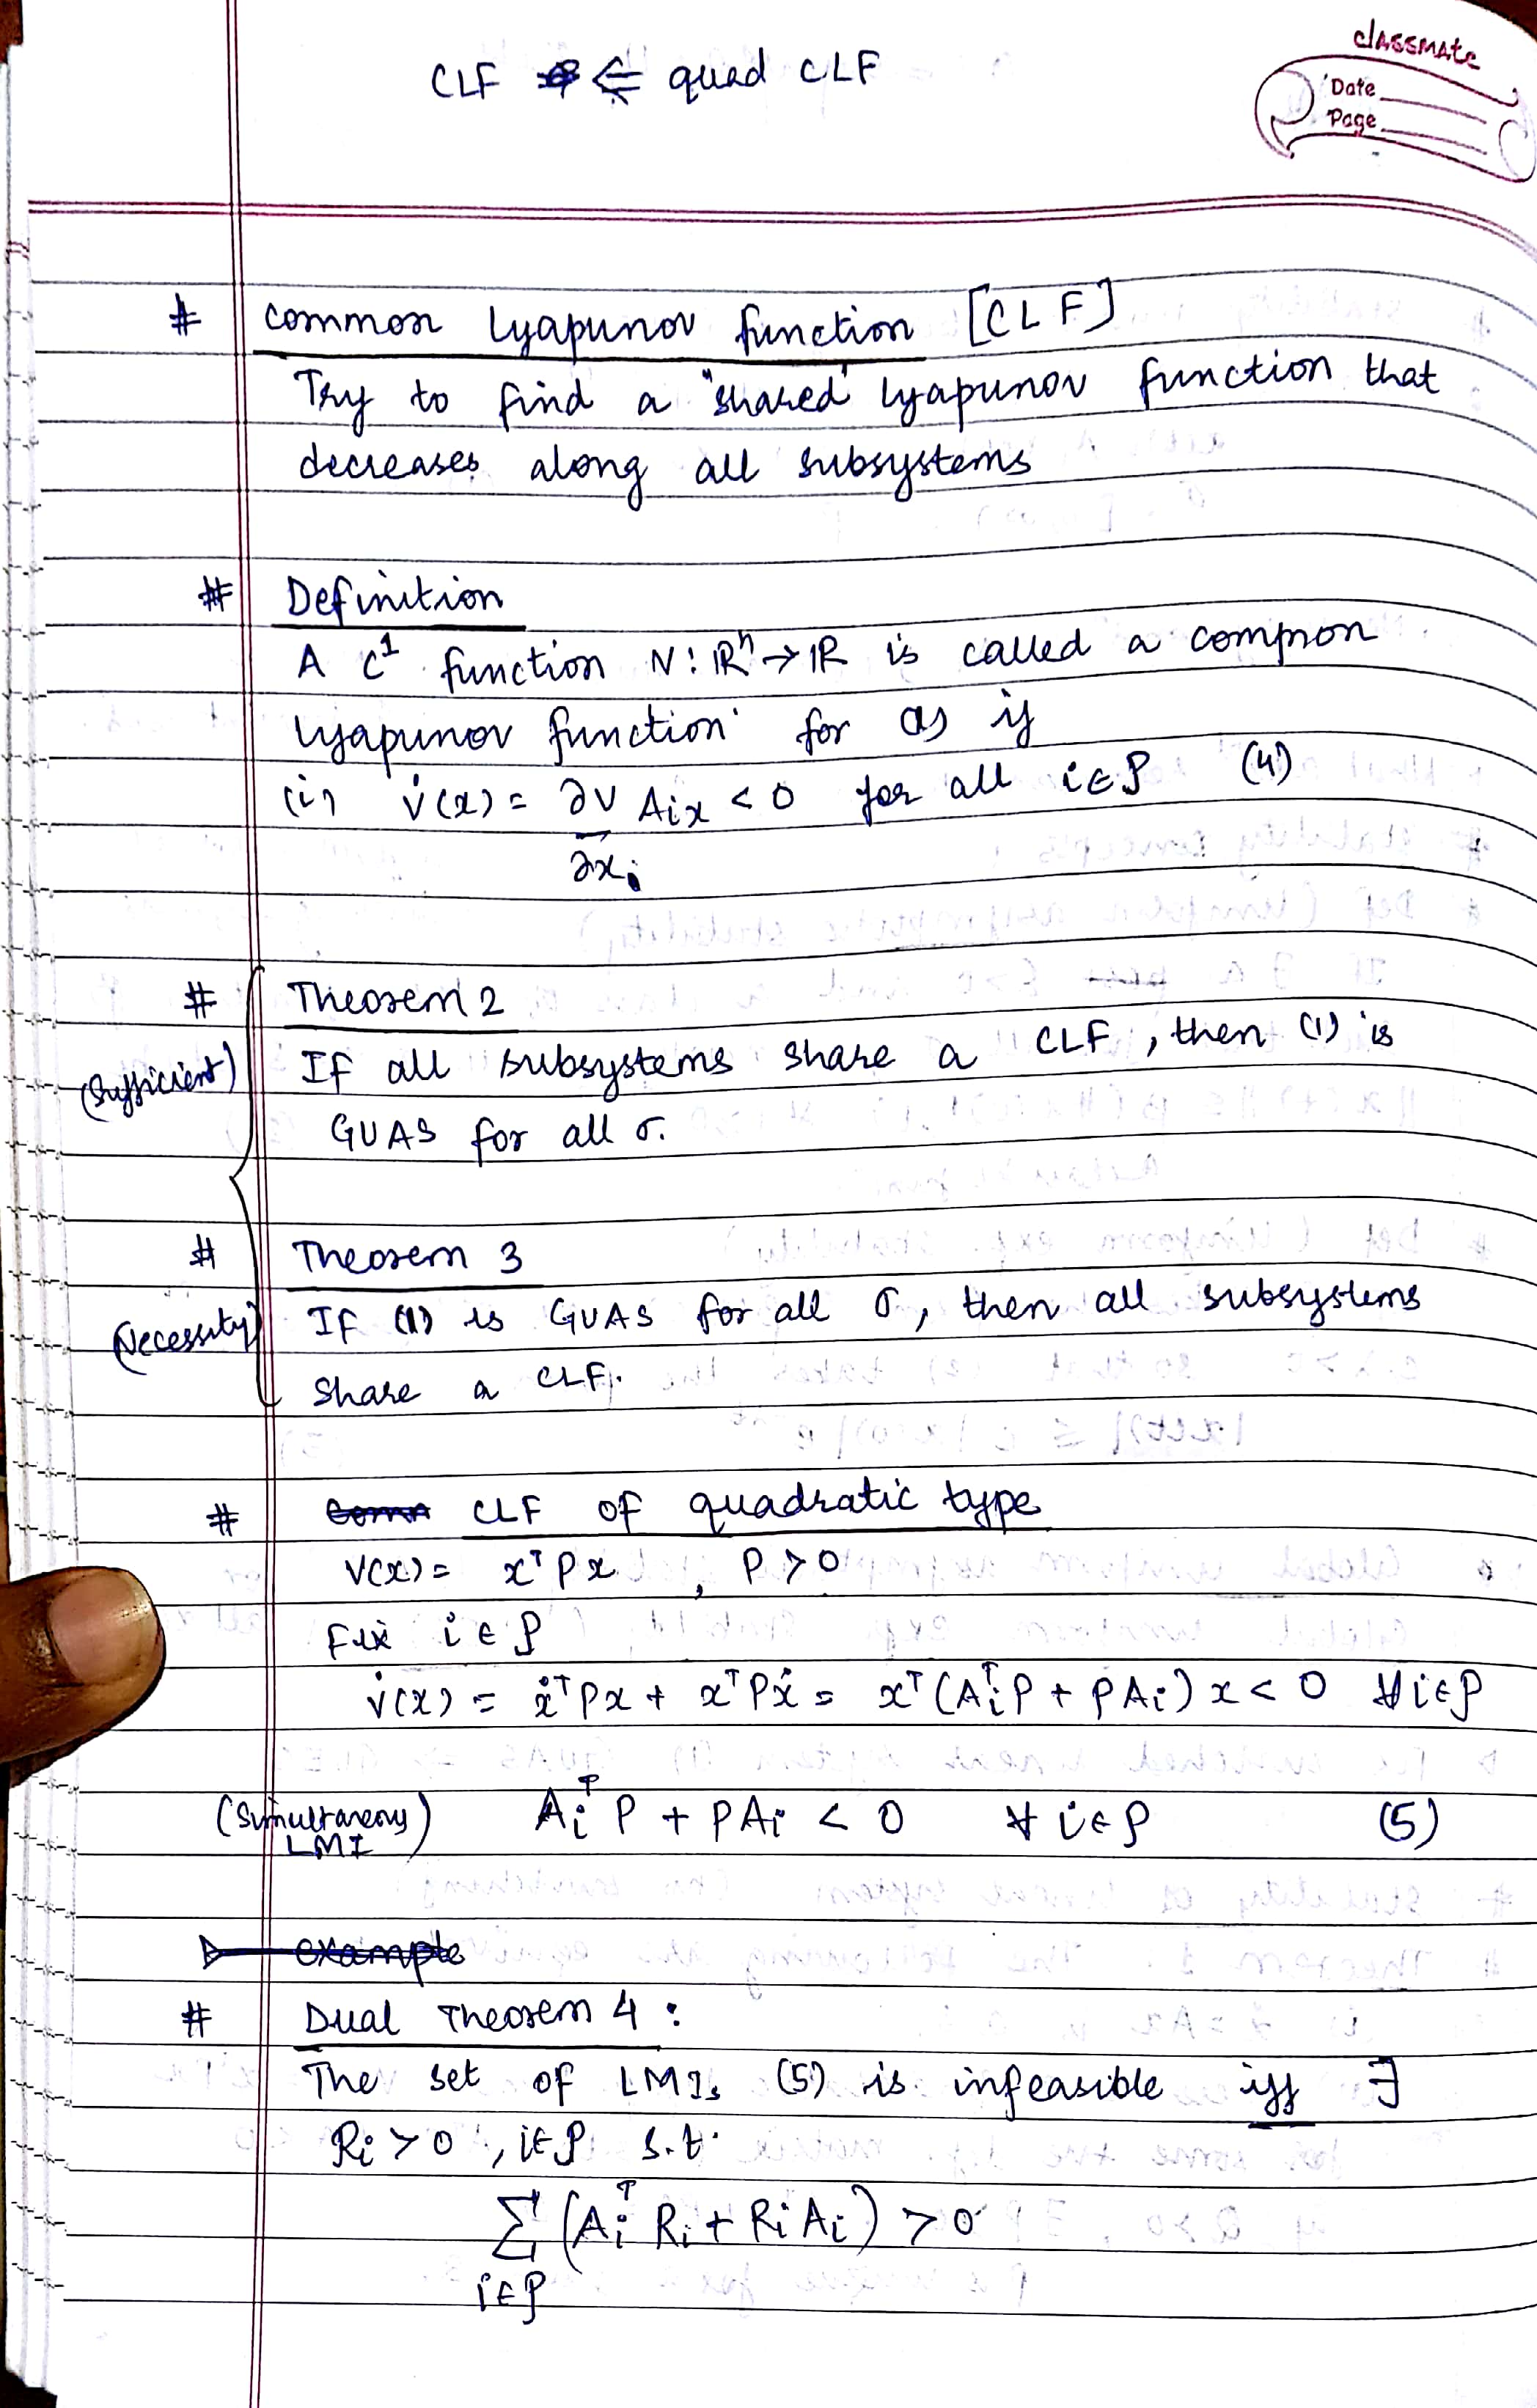 CLF ⇐ quad CLF
classmate
Date
Page
# Common Lyapunov function [CLF]
Try to find a "shared" lyapunov function that
decreases along all subsystems
# Definition
A C¹ function V: ℝⁿ → ℝ is called a common
lyapunov function for (1) if
(i) V̇(x) = ∂V/∂x Aᵢx < 0 for all i ∈ P (4)
# Theorem 2
(Sufficient) If all subsystems share a CLF, then (1) is
GUAS for all σ.
# Theorem 3
(Necessity) If (1) is GUAS for all σ, then all subsystems
share a CLF.
# CLF of quadratic type
V(x) = xᵀPx , P > 0
Fix i ∈ P
V̇(x) = ẋᵀPx + xᵀPẋ = xᵀ(AᵢᵀP + PAᵢ)x < 0 ∀ i ∈ P
(Simultaneous LMI) AᵢᵀP + PAᵢ < 0 ∀ i ∈ P (5)
▷ ~~example~~
# Dual Theorem 4 :
The set of LMIs (5) is infeasible iff ∃
Rᵢ > 0 , i ∈ P s.t.
∑ (AᵢᵀRᵢ + RᵢAᵢ) > 0
i ∈ P